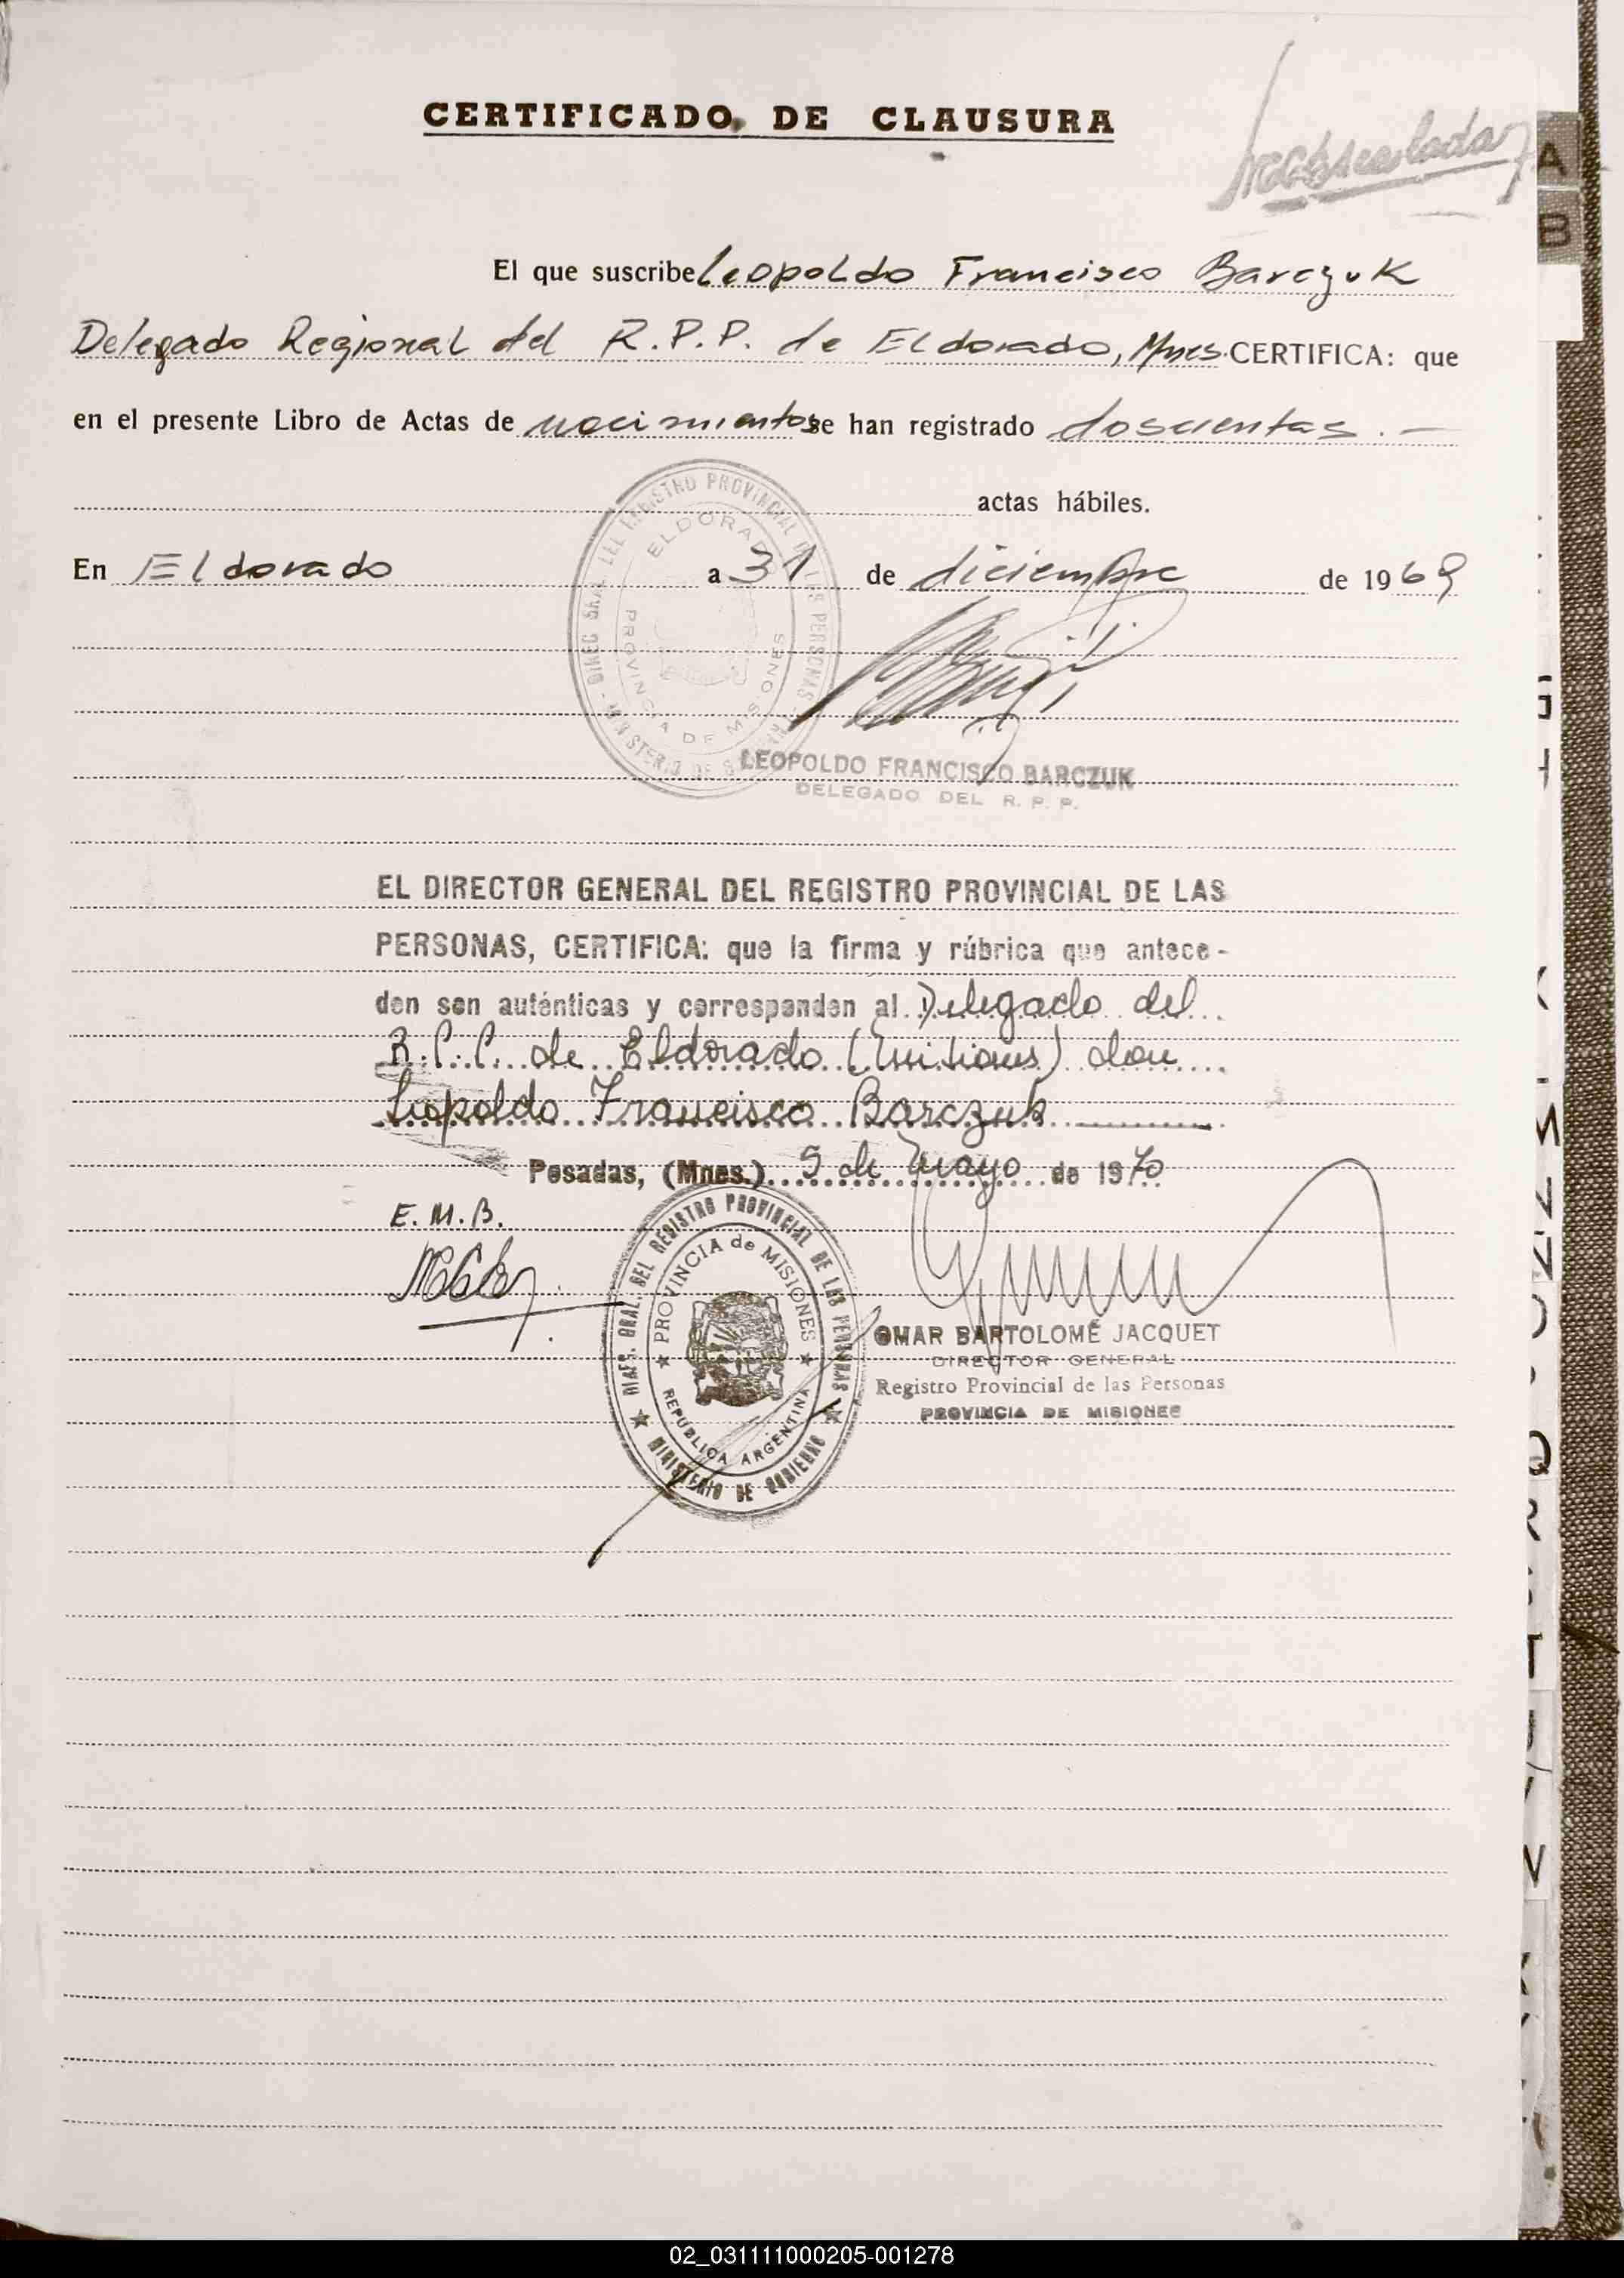 CERTIFICADO DE CLAUSURA
A
B
El que suscribe Leopoldo Francisco Barczuk
Delegado Regional del R.P.P. de Eldorado, Mnes. CERTIFICA: que
en el presente Libro de Actas de nacimientos se han registrado doscientas.—
actas hábiles.
En Eldorado a 31 de diciembre de 1969
DIREC GRAL DEL REGISTRO PROVINCIAL DE LAS PERSONAS
ELDORADO
PROVINCIA DE MISIONES
LEOPOLDO FRANCISCO BARCZUK
DELEGADO DEL R. P. P.
EL DIRECTOR GENERAL DEL REGISTRO PROVINCIAL DE LAS
PERSONAS, CERTIFICA: que la firma y rúbrica que antece-
den son auténticas y corresponden al Delegado del
R.P.P. de Eldorado (Misiones) don
Leopoldo Francisco Barczuk
Posadas, (Mnes.) 5 de Mayo de 1970
E.M.B.
REGISTRO PROVINCIAL DE LAS PERSONAS
PROVINCIA de MISIONES
REPUBLICA ARGENTINA
MINISTERIO DE GOBIERNO
OMAR BARTOLOMÉ JACQUET
DIRECTOR GENERAL
Registro Provincial de las Personas
PROVINCIA DE MISIONES
02_031111000205-001278